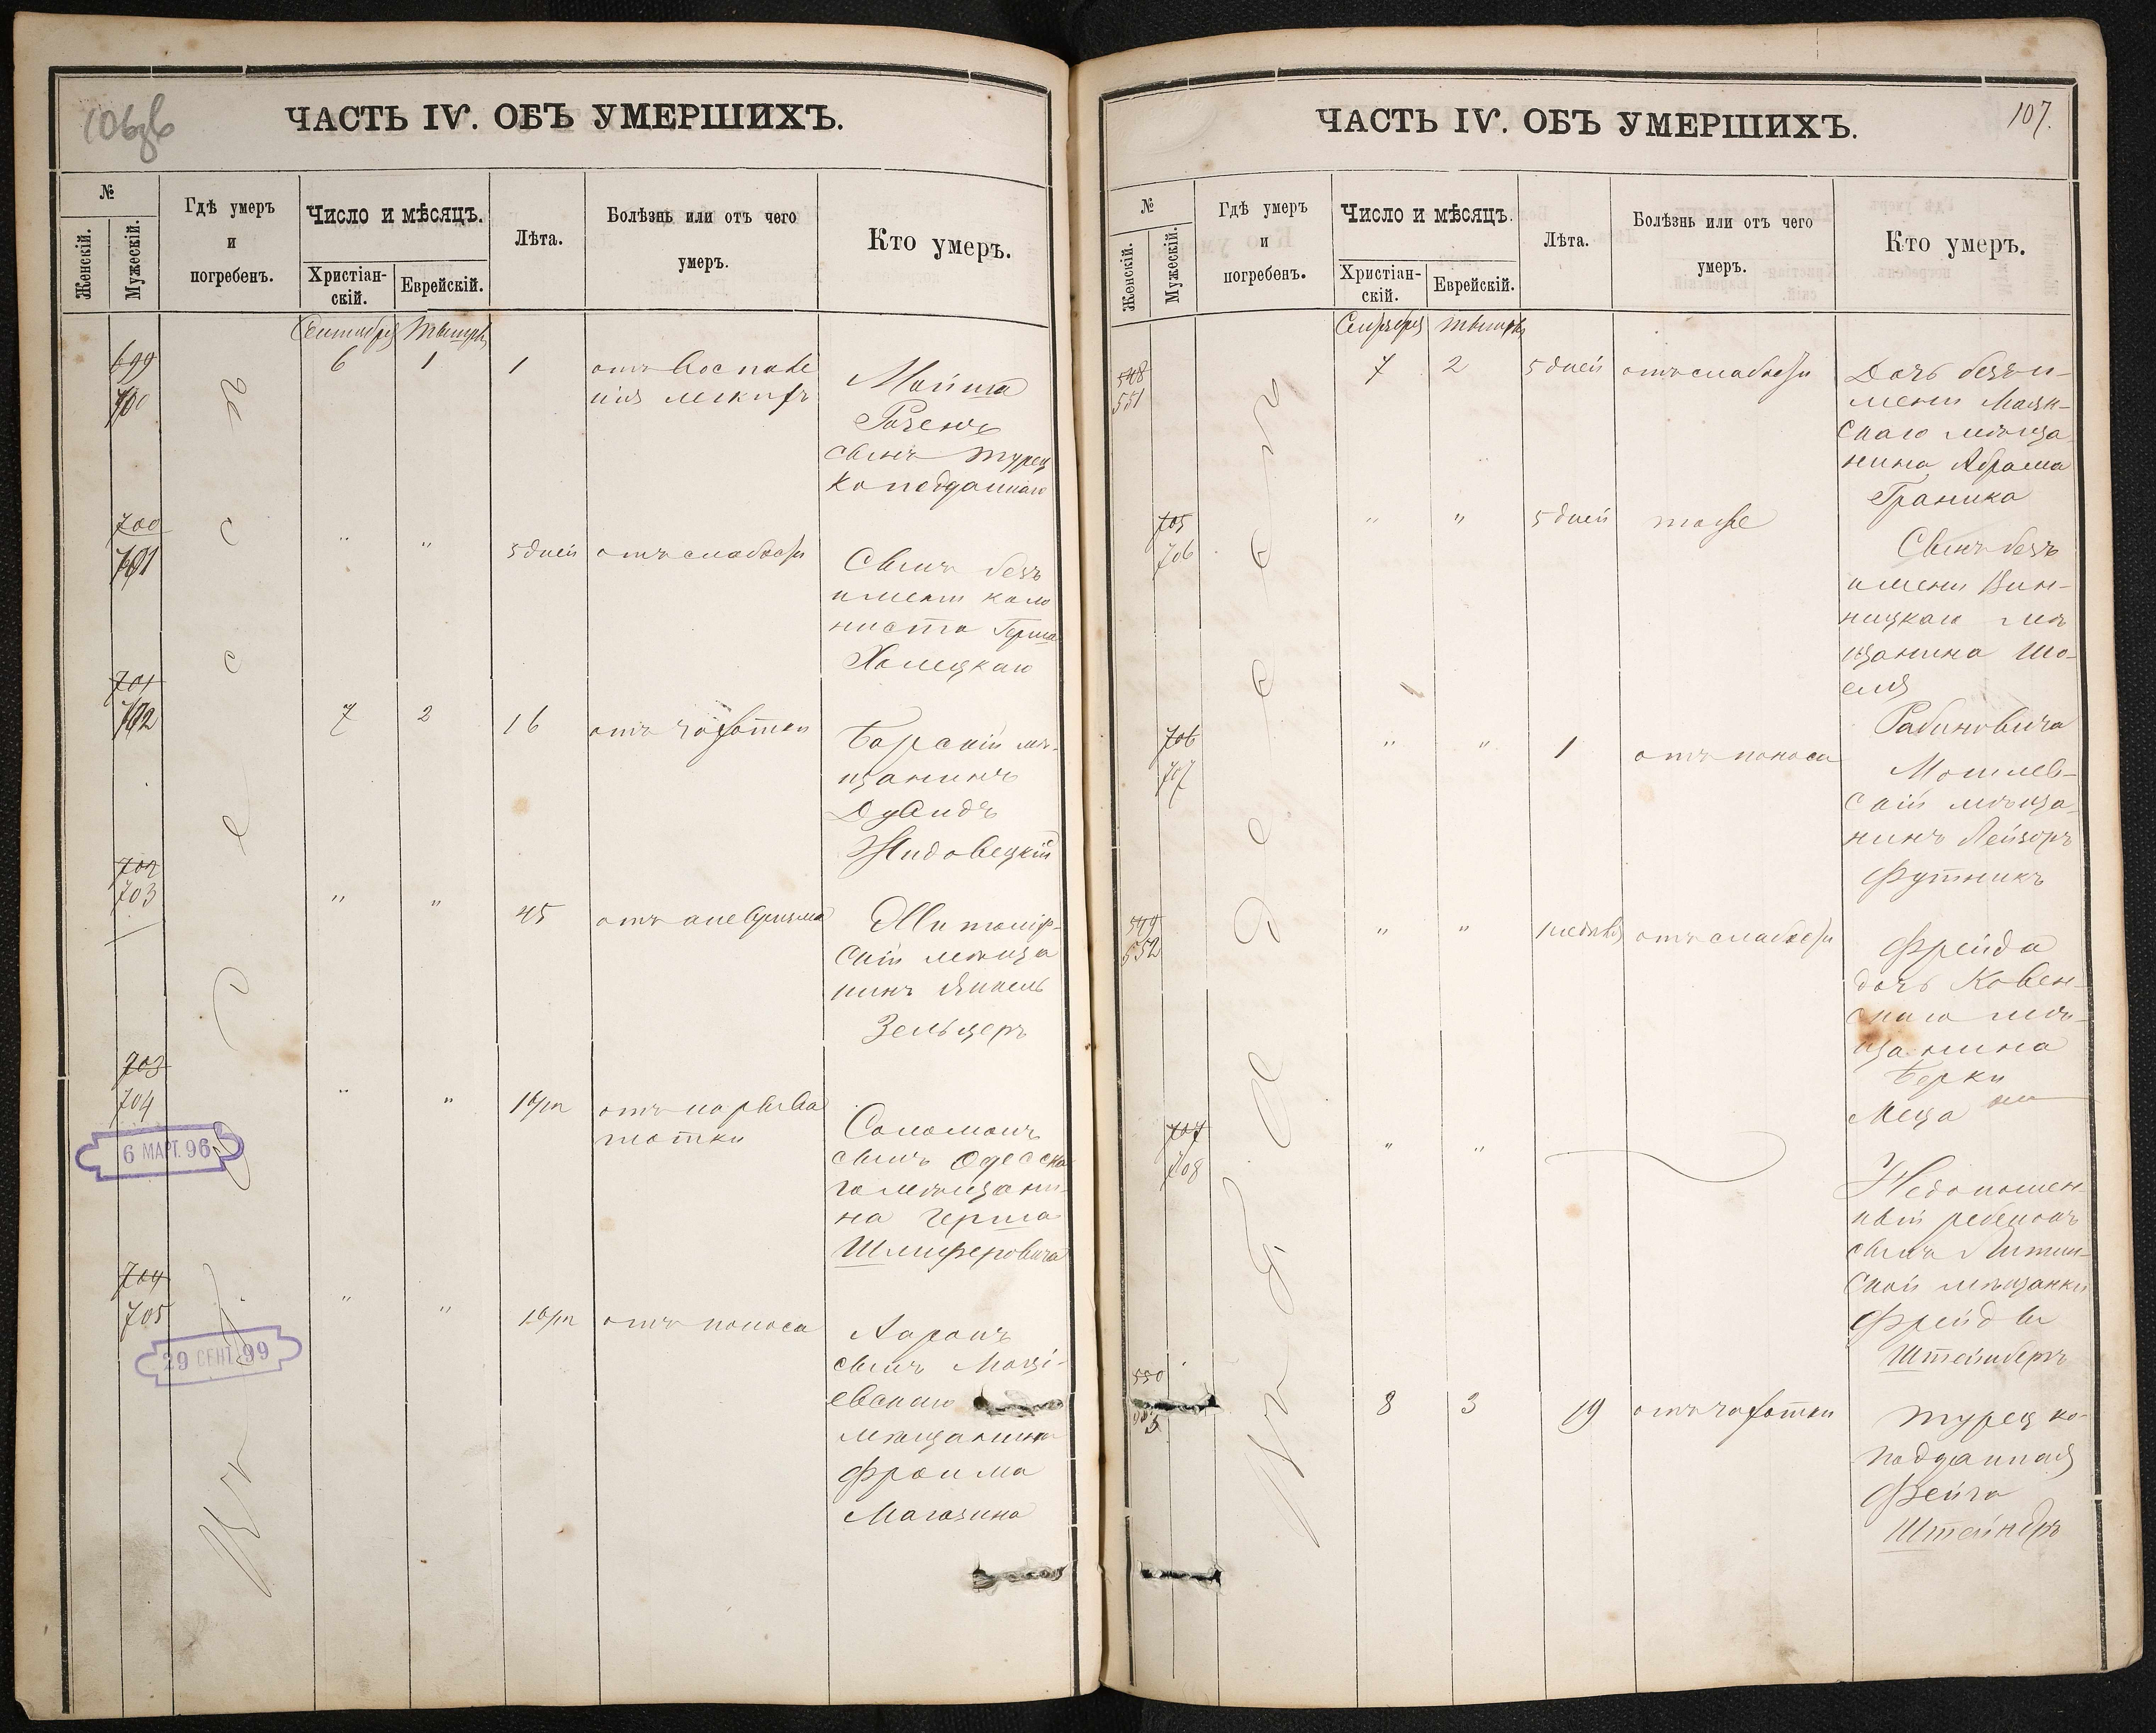 106
ЧАСТЬ IV. ОБЪ УМЕРШИХЪ.
№
Женскій.
Мужескій.
Гдѣ умеръ
и
погребенъ.
Число и мѣсяцъ.
Христіан-
скій.
Еврейскій.
Лѣта.
Болѣзнь или отъ чего
умеръ.
Кто умеръ.
Въ г. Одессѣ
Сентября Тышры
699
700
6 1 1
отъ воспале
нія легкихъ
Мойша
сынъ турец
коподданнаго
700
701
" " 5 дней отъ слабости
Сынъ безъ
имени коло
ниста Герша
Холецкаго
701
702
7 2 16 отъ чахотки
Барскій мѣ-
щанинъ
Дувидъ
Жидовецкій
702
703
" " 45 отъ аневризма
Житомір-
скій мѣща
нинъ
Зельцеръ
703
704
" " отъ нарыва
глотки
Соломонъ
сынъ Одесска
го мѣщани
на Герша
Шлиферовича
6 МАРТ. 96
704
705
" " отъ поноса
Ааронъ
сынъ
евскаго
мѣщанина
Фроима
Магазина
29 СЕНТ. 99
107.
ЧАСТЬ IV. ОБЪ УМЕРШИХЪ.
№
Женскій.
Мужескій.
Гдѣ умеръ
и
погребенъ.
Число и мѣсяцъ.
Христіан-
скій.
Еврейскій.
Лѣта.
Болѣзнь или отъ чего
умеръ.
Кто умеръ.
Въ г. Одессѣ
Сентября Тышры
548
551
7 2 5 дней отъ слабости
Дочь безъ и-
мени
скаго мѣща
нина Абрама
Граника
705
706
" " 5 дней тоже
Сынъ безъ
имени Вин-
ницкаго мѣ
щанина Шо-
еля
Рабиновича
706
707
" " 1 отъ поноса
Могилев-
скій мѣща
нинъ Лейзоръ
Футникъ
549
552
" " 1 недѣля отъ слабости
Фрейда
дочь Ковен-
скаго мѣ-
щанина
Берки
Меца
707
708
" "
Недоношен-
ный ребенокъ
сынъ Литин-
ской мѣщанки
Фрейды
Штейнбергъ
550
8 3 19 отъ чахотки
Турецко-
подданная
Фейга
Штейнбергъ